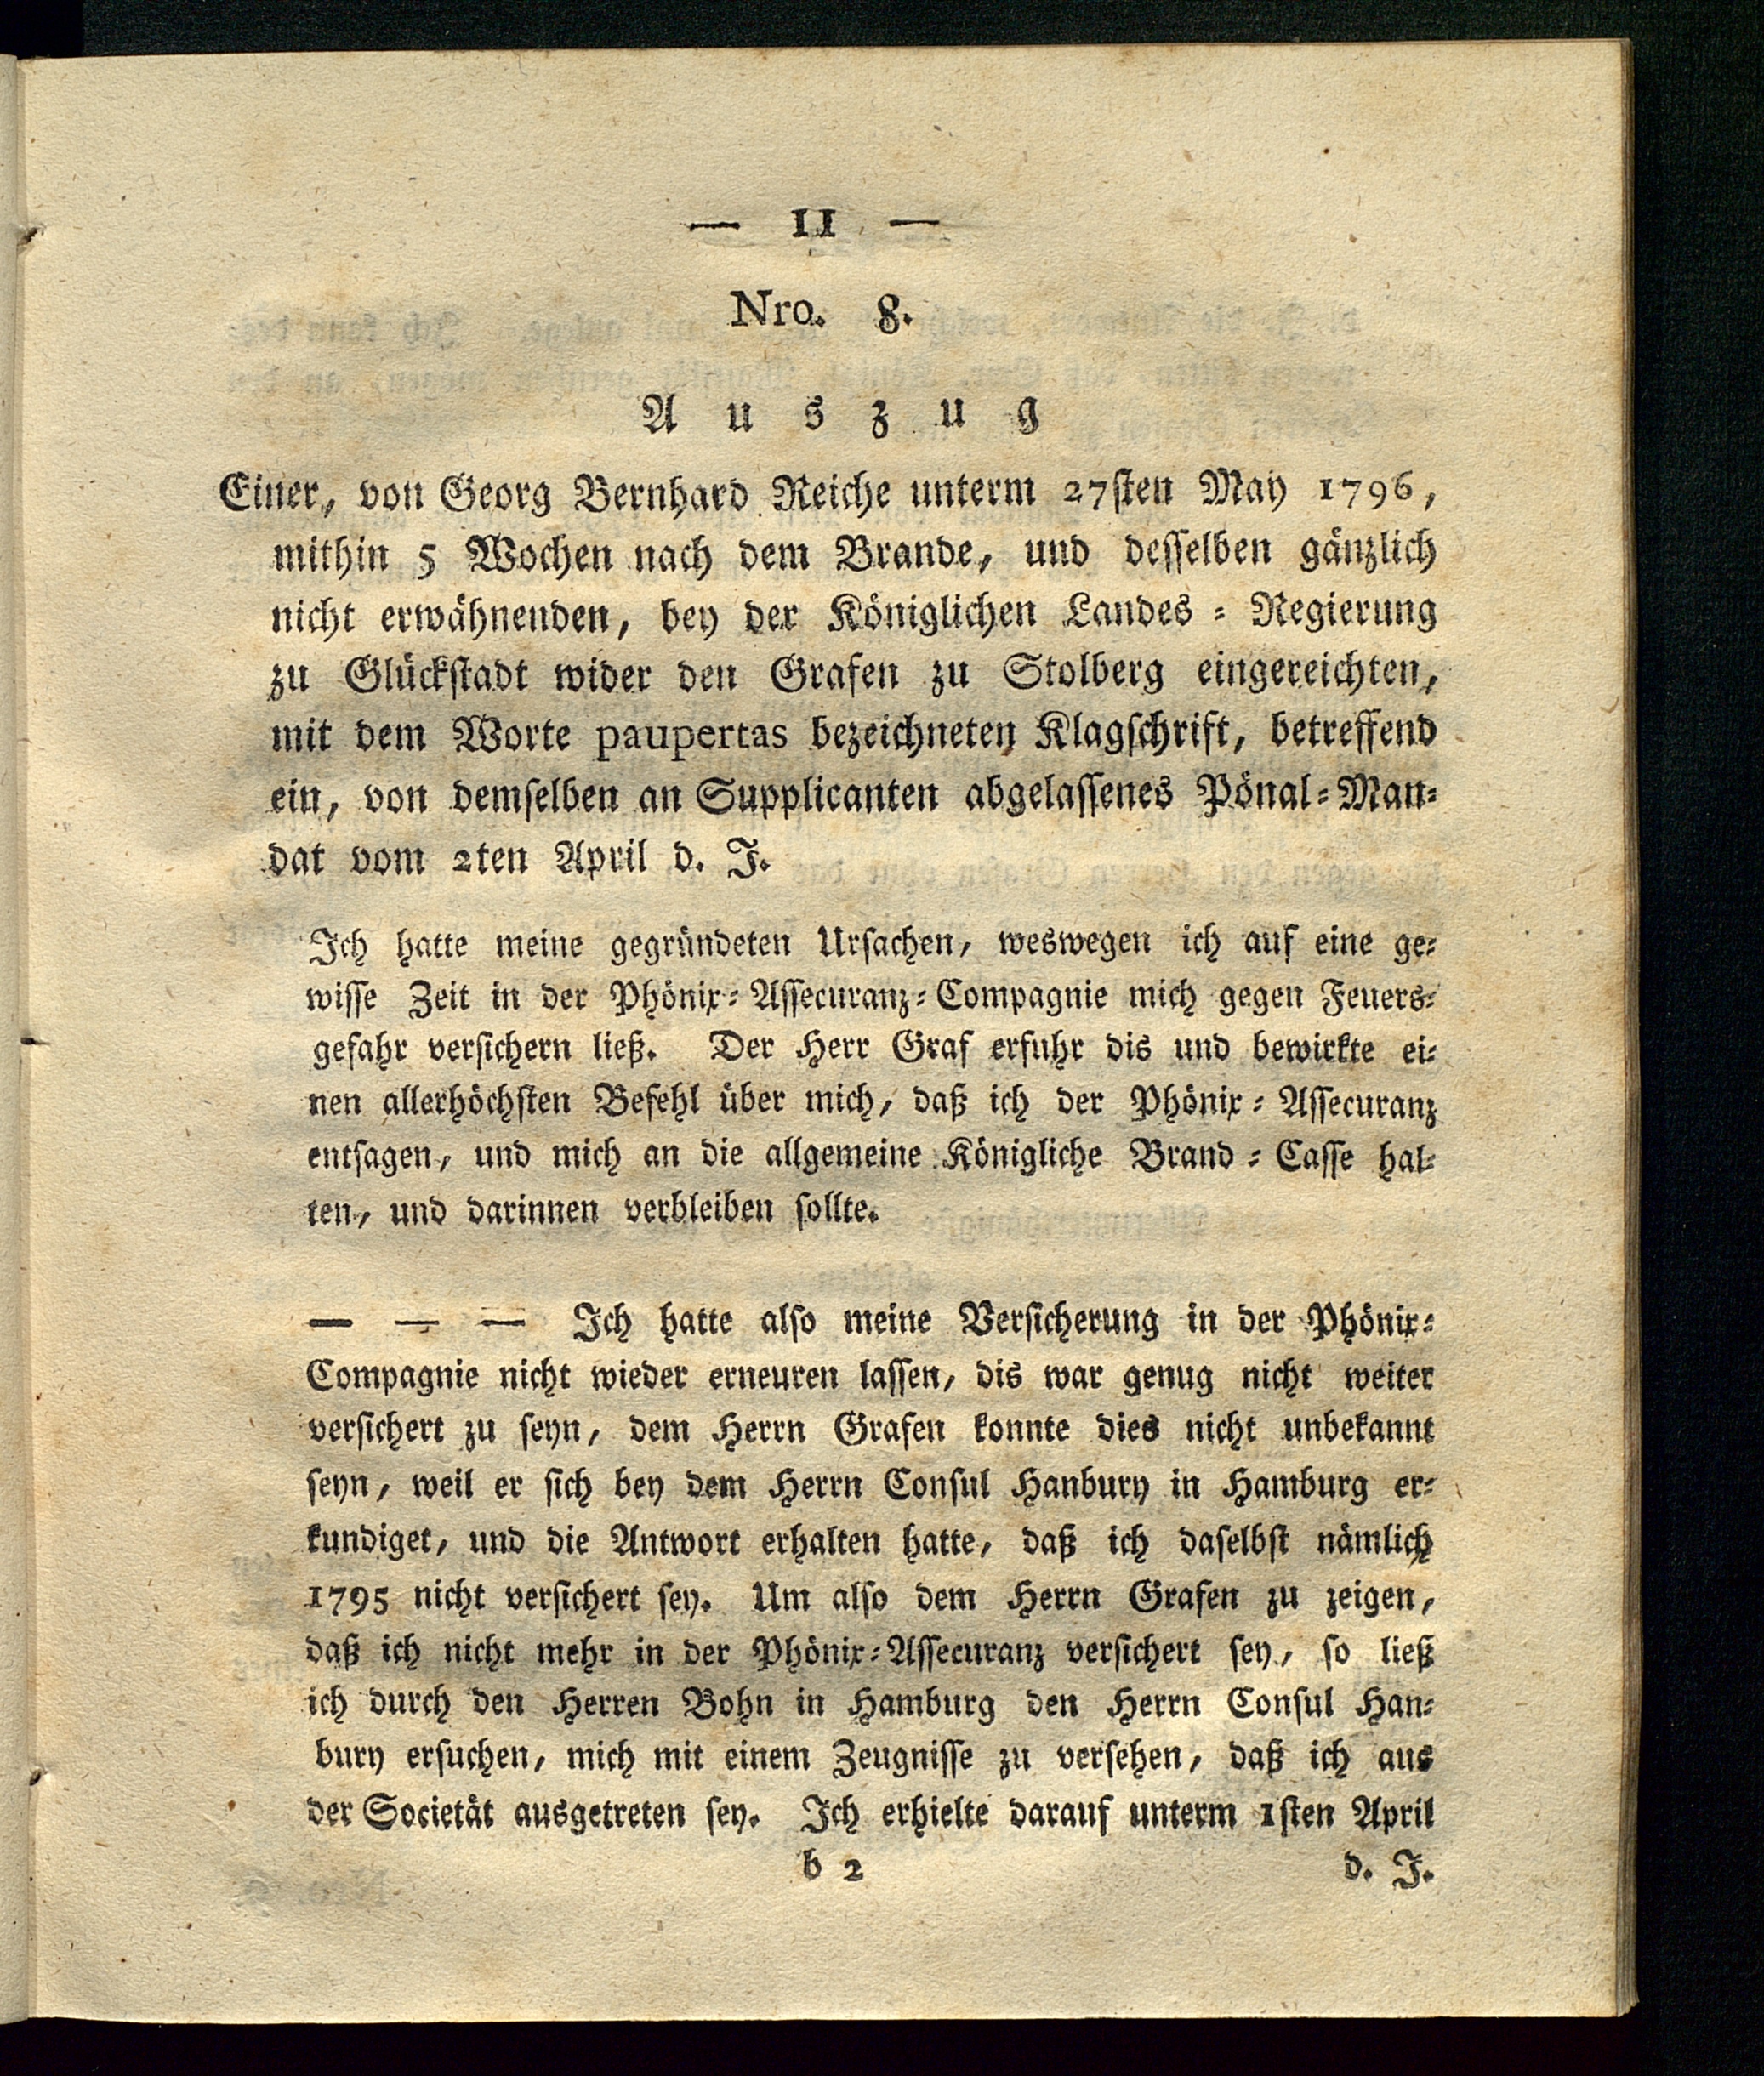 — 11 —
Nro. 8.
Auszug
Einer, von Georg Bernhard Reiche unterm 27sten May 1796,
mithin 5 Wochen nach dem Brande, und desselben gänzlich
nicht erwähnenden, bey der Königlichen Landes-Regierung
zu Glückstadt wider den Grafen zu Stolberg eingereichten,
mit dem Worte paupertas bezeichneten Klagschrift, betreffend
ein, von demselben an Supplicanten abgelassenes Pönal-Man-
dat vom 2ten April d. J.
Ich hatte meine gegründeten Ursachen, weswegen ich auf eine ge-
wisse Zeit in der Phönix-Assecuranz-Compagnie mich gegen Feuers-
gefahr versichern ließ. Der Herr Graf erfuhr dis und bewirkte ei-
nen allerhöchsten Befehl über mich, daß ich der Phönix-Assecuranz
entsagen, und mich an die allgemeine Königliche Brand-Casse hal-
ten, und darinnen verbleiben sollte.
— — — Ich hatte also meine Versicherung in der Phönix-
Compagnie nicht wieder erneuren lassen, dis war genug nicht weiter
versichert zu seyn, dem Herrn Grafen konnte dies nicht unbekannt
seyn, weil er sich bey dem Herrn Consul Hanbury in Hamburg er-
kundiget, und die Antwort erhalten hatte, daß ich daselbst nämlich
1795 nicht versichert sey. Um also dem Herrn Grafen zu zeigen,
daß ich nicht mehr in der Phönix-Assecuranz versichert sey, so ließ
ich durch den Herren Bohn in Hamburg den Herrn Consul Han-
bury ersuchen, mich mit einem Zeugnisse zu versehen, daß ich aus
der Societät ausgetreten sey. Ich erhielte darauf unterm 1sten April
b 2 d. J.